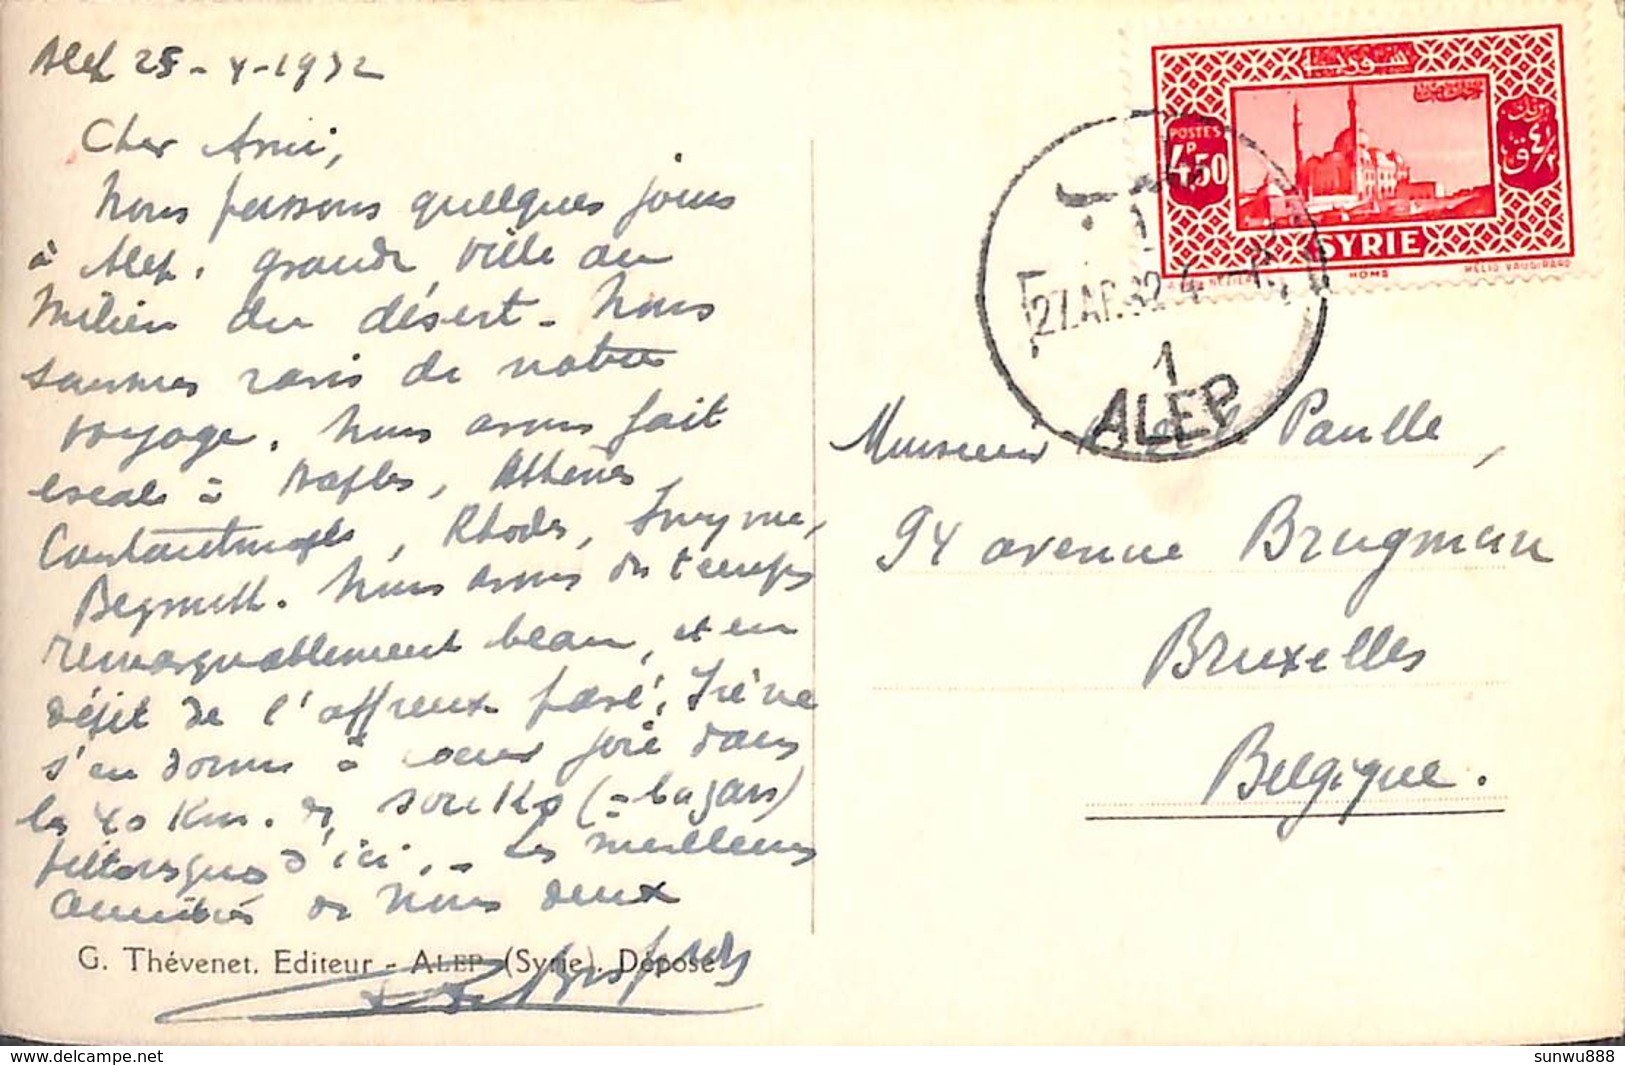 Alep 25-4-1932
Cher Ami,
Nous passons quelques jours
à Alep, grande ville au
milieu du désert - Nous
sommes ravis de notre
voyage. Nous avons fait
escale à Naples, Athènes,
Constantinople, Rhodes, Smyrne,
Beyrouth. Nous avons du temps
remarquablement beau, et en
dépit de l'affreux pavé, Irène
s'en donne à coeur joie dans
les 40 Km. de souks (= bazars)
pittoresques d'ici. - Les meilleures
amitiés de nous deux
G. Thévenet, Editeur - ALEP (Syrie). Déposé
سورية
POSTES
4P50
SYRIE
HOMS
HÉLIO VAUGIRARD
27.AP.32.4
1
ALEP
Monsieur Paulle,
94 avenue Brugman
Bruxelles
Belgique.
delcampe.net
sunwu888